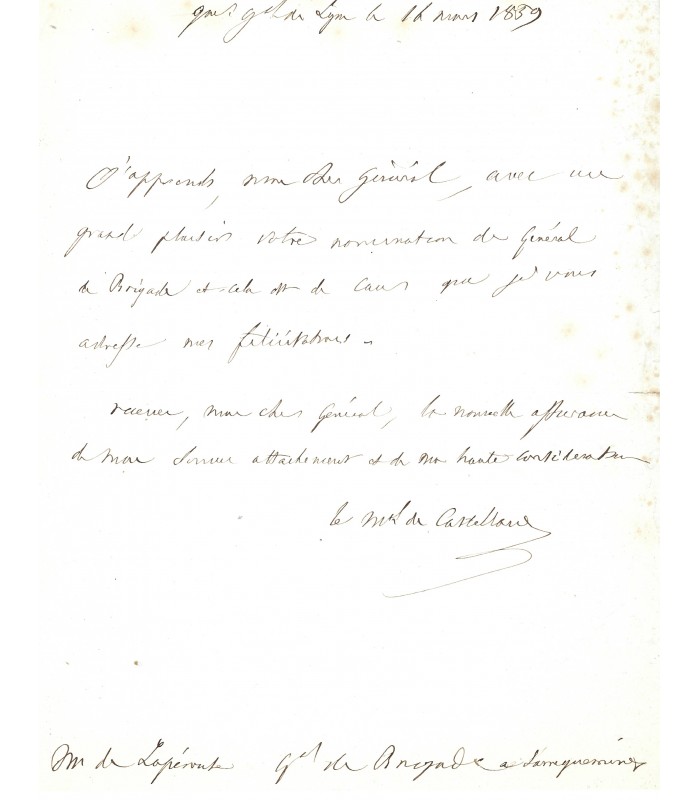 qer gal de Lyon le 16 mars 1859
J'apprends, mon cher Général, avec un
grand plaisir votre nomination de Général
de Brigade et cela est de cœur que je vous
adresse mes félicitations.
recevez, mon cher Général, la nouvelle assurance
de mon sincère attachement et de ma haute considération
le Mal de Castellane
Mr de Lapérouse Gal de Brigade a Sarreguemines